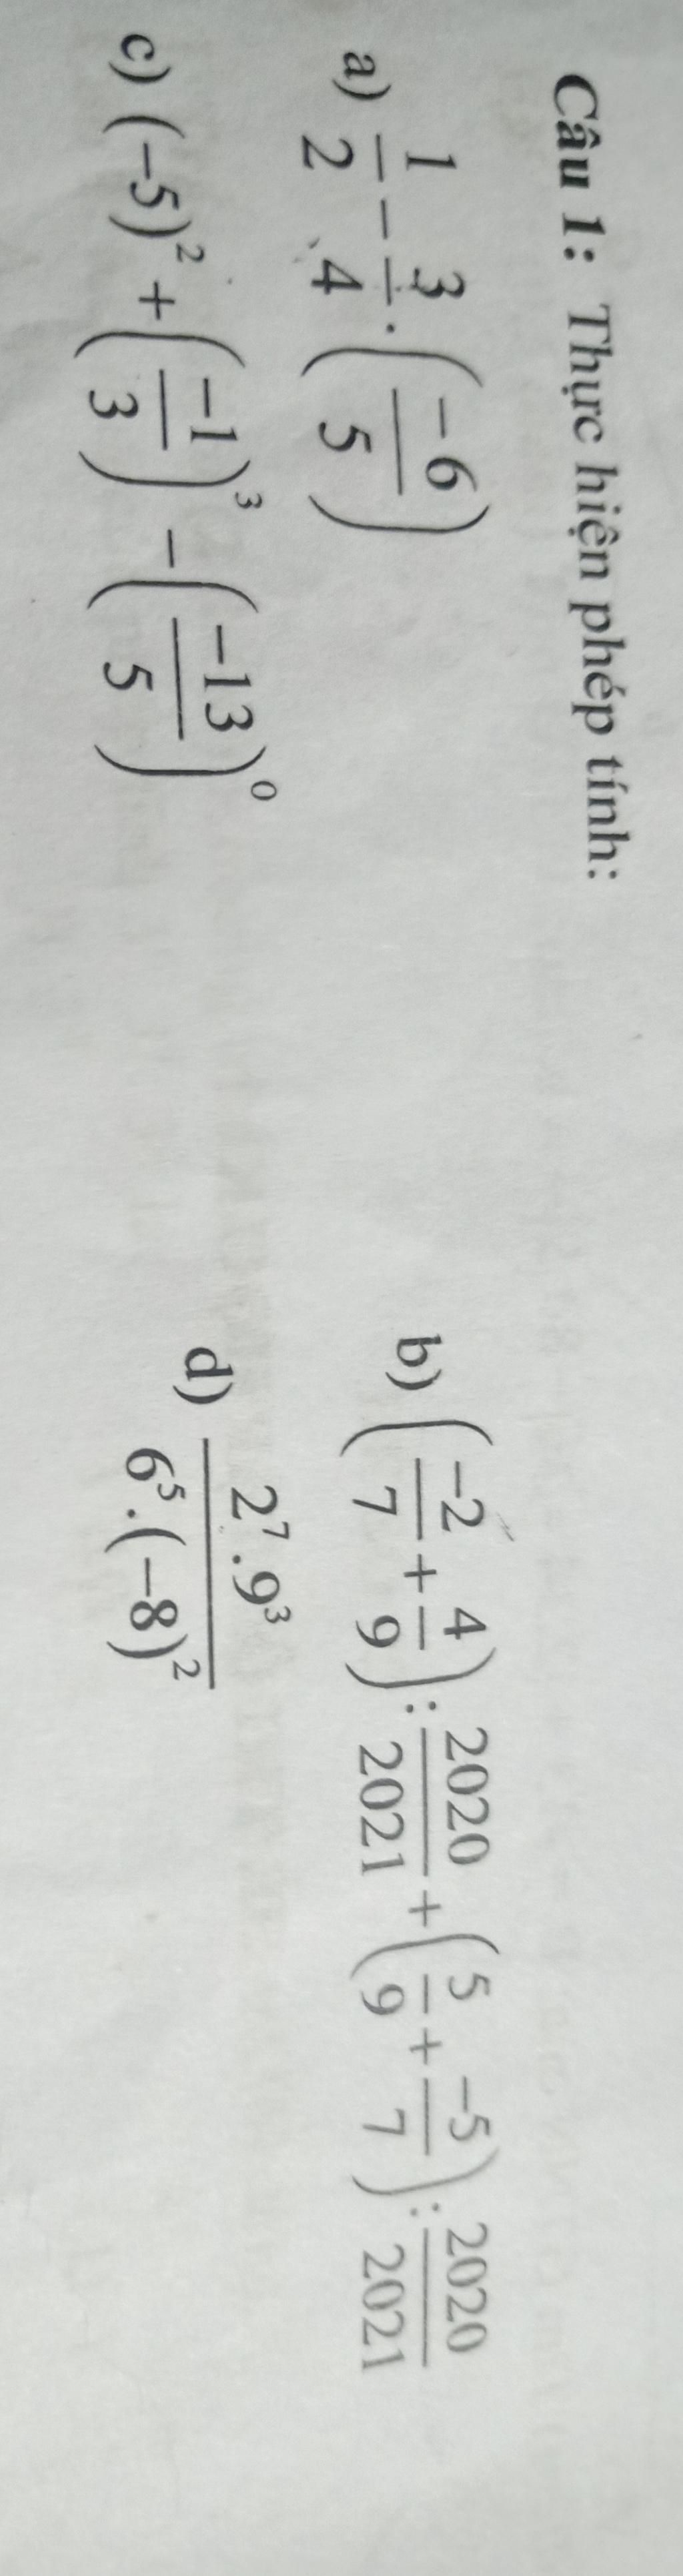 Câu 1: Thực hiện phép tính:
a) \frac{1}{2} - \frac{3}{4} . \left(\frac{-6}{5}\right) b) \left(\frac{-2}{7} + \frac{4}{9}\right) : \frac{2020}{2021} + \left(\frac{5}{9} + \frac{-5}{7}\right) : \frac{2020}{2021}
c) (-5)^2 + \left(\frac{-1}{3}\right)^3 - \left(\frac{-13}{5}\right)^0 d) \frac{2^7 . 9^3}{6^5 . (-8)^2}